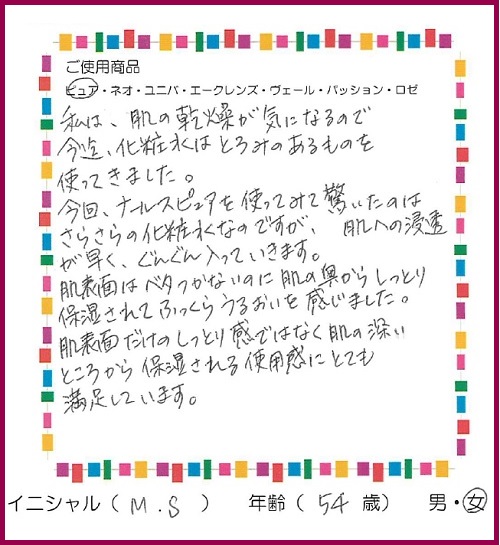 ご使用商品
ピュア・ネオ・ユニバ・エークレンズ・ヴェール・パッション・ロゼ
私は、肌の乾燥が気になるので
今迄、化粧水はとろみのあるものを
使ってきました。
今回、ナールスピュアを使ってみて驚いたのは
さらさらの化粧水なのですが、肌への浸透
が早く、ぐんぐん入っていきます。
肌表面はベタつかないのに肌の奥からしっとり
保湿されてふっくらうるおいを感じました。
肌表面だけのしっとり感ではなく肌の深い
ところから保湿される使用感にとても
満足しています。
イニシャル（ M.S ） 年齢（ 54 歳） 男・女